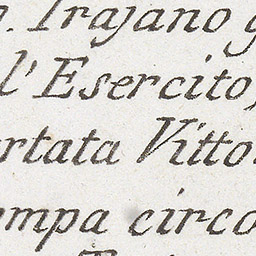 n. Trajano g
l'Esercito,
rtata Vitto
ompa circo